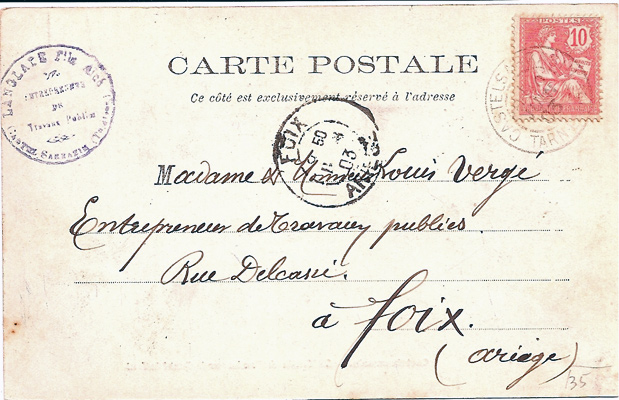 CARTE POSTALE
Ce côté est exclusivement réservé à l'adresse
POSTES
10
ENTREPRENEUR
DE
Travaux Publics
CASTEL SARRAZIN
FOIX
50
03
CASTELS
TARN
Madame & Monsieur Louis Vergé
Entrepreneur de Travaux publics.
Rue Delcassé.
à Foix.
(Ariège)
135